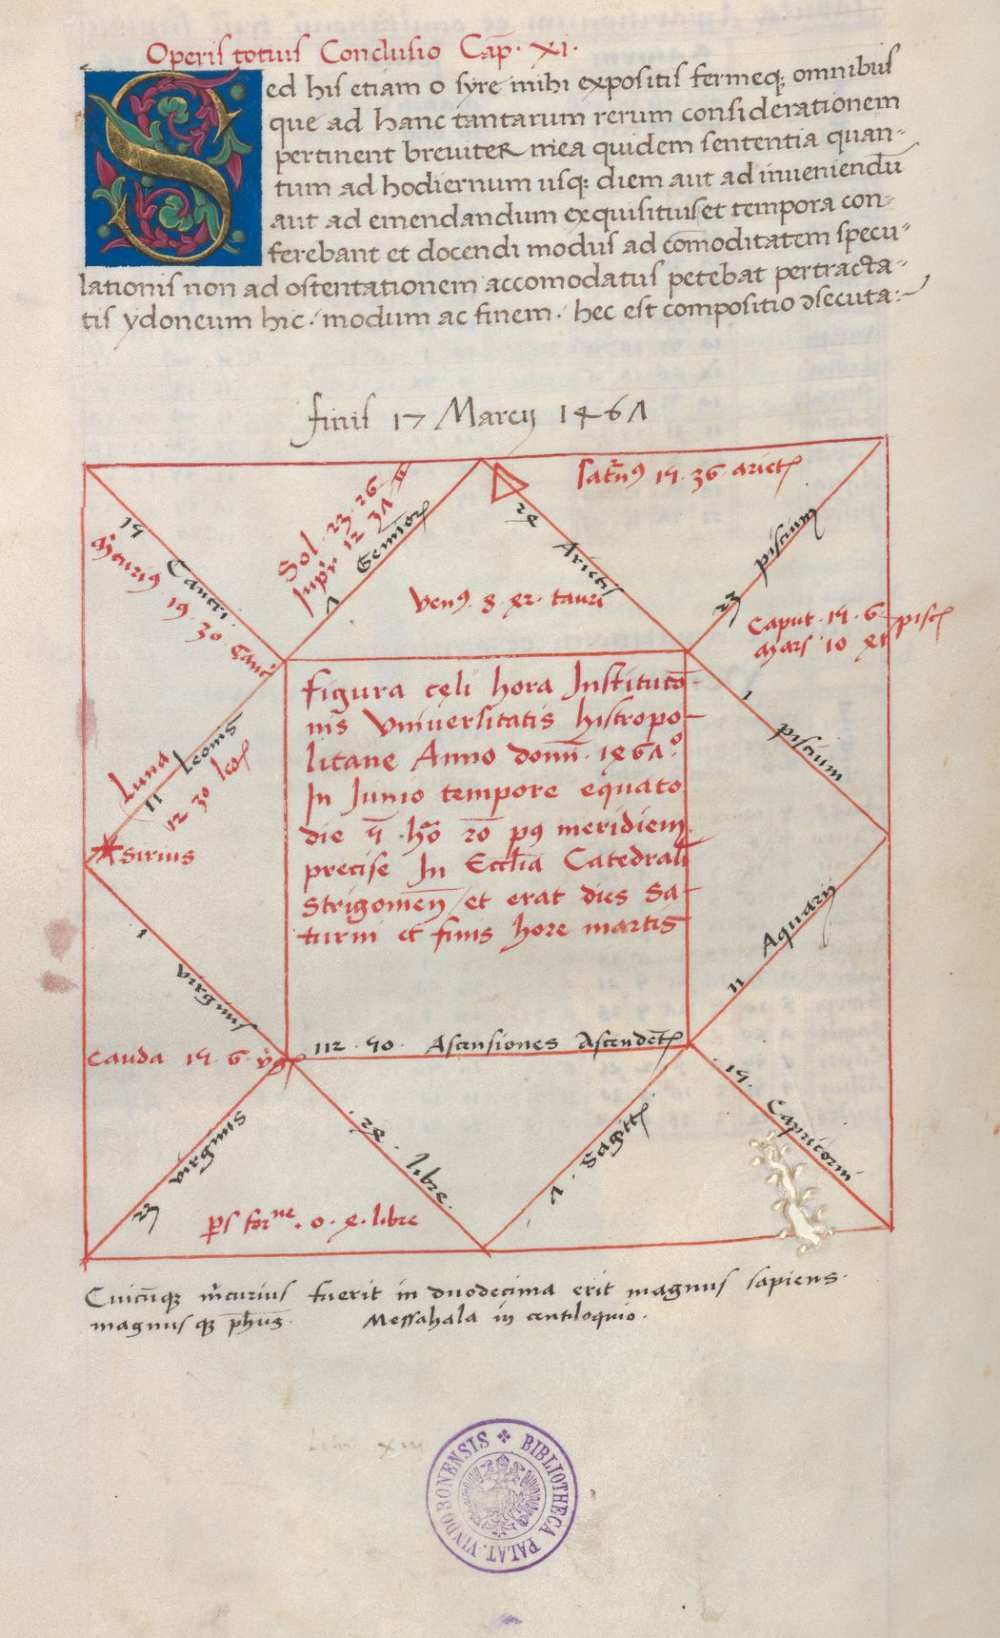 Operis totius Conclusio Cap. XI.
Sed his etiam o syre mihi expositis fermeq; omnibus
que ad hanc tantarum rerum considerationem
pertinent breviter mea quidem sententia quan-
tum ad hodiernum usq; diem aut ad inveniendū
aut ad emendandum exquisitius et tempora con-
ferebant et docendi modus ad cōmoditatem specu-
lationis non ad ostentationem accomodatus petebat pertracta-
tis ydoneum hic . modum ac finem . hec est compositio ɔsecuta :
finis 17 Marcij 1467
Saturnꝰ 14 . 36 arietꝭ
Sol . 23 . 26 II
Jupr 12 37
7 Geminoꝝ
24 Arietis
23 piscium
14 Cancri
Mercuriꝰ 19 . 30 Cancꝭ
Venꝰ . 8 . 42 . tauri
Caput . 14 . 6 piscꝭ
Mars 10 41
1 piscium
Luna 12 30 leoꝭ
11 Leonis
Sirius
figura cęli hora Institutō-
nis Universitatis histropo-
litane Anno domī . 1467°
In Junio tempore equato
die 4 . ho 20 pꝰ meridiem
precise In Eccłia Catedrali
Strigonień / et erat dies Sa-
turni et finis hore martis
11 Aquarij
1 virginis
Cauda 14 . 6 vgꝭ
112 . 40 . Ascensiones Ascendētꝭ
14 . Capricorni
23 virginis
24 . libre .
7 . Sagittꝭ
ꝑs forne . 0 . 4 . libre
Cuicūqꝫ mercurius fuerit in duodecima erit magnus sapiens .
magnus qꝫ phūs . Messahala in centiloquio .
BIBLIOTHECA PALAT. VINDOBONENSIS